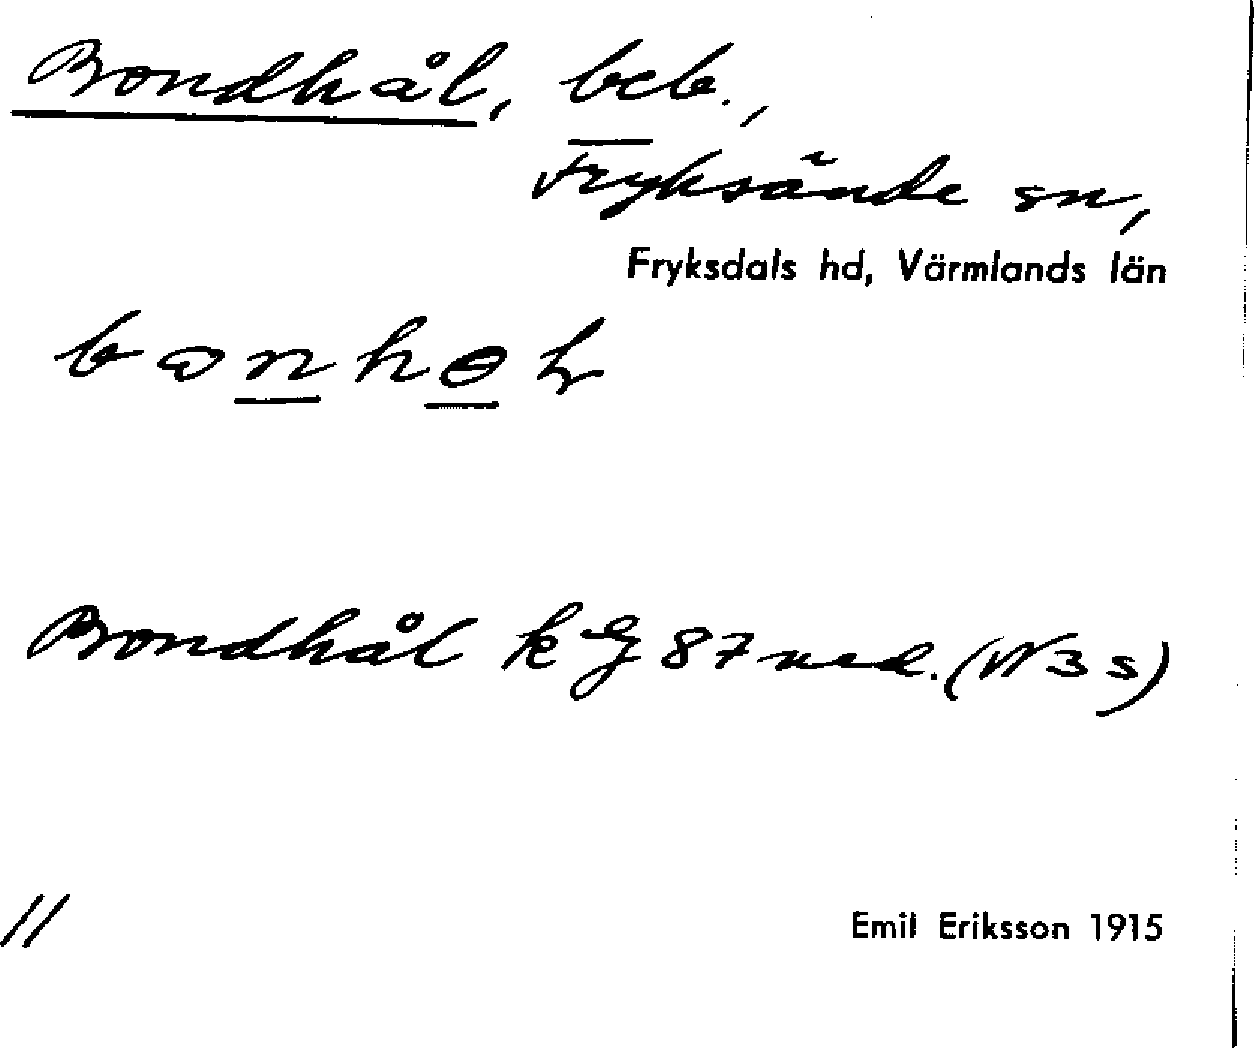 Bondhål, beb.,
Fryksände sn,
Fryksdals hd, Värmlands län
Bondhål 87 ned. (N3s)
11
Emil Eriksson 1915